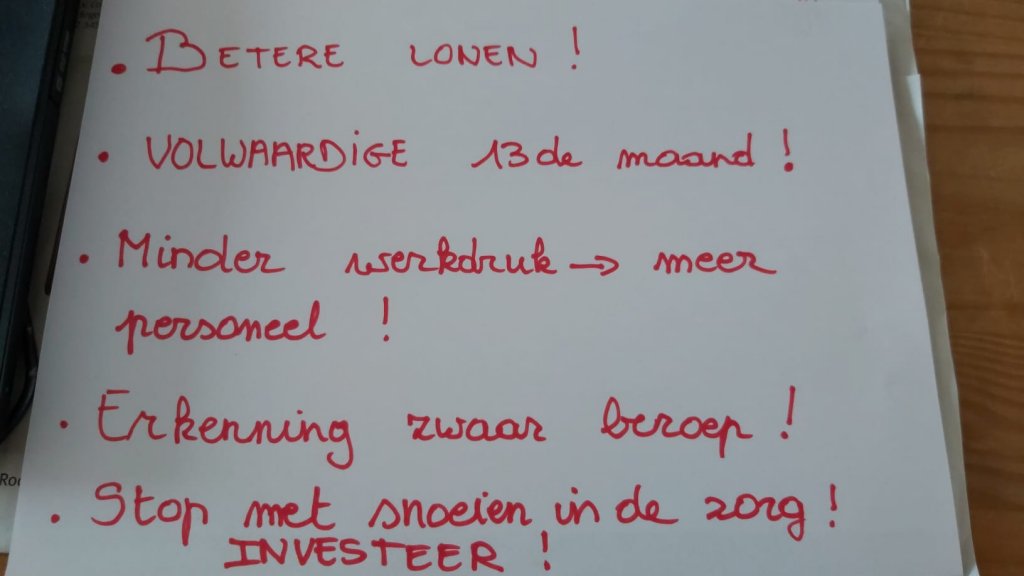 • BETERE LONEN !
• VOLWAARDiGE 13de maand !
• Minder werkdruk → meer
personeel !
• Erkenning zwaar beroep !
• Stop met snoeien in de zorg !
INVESTEER !